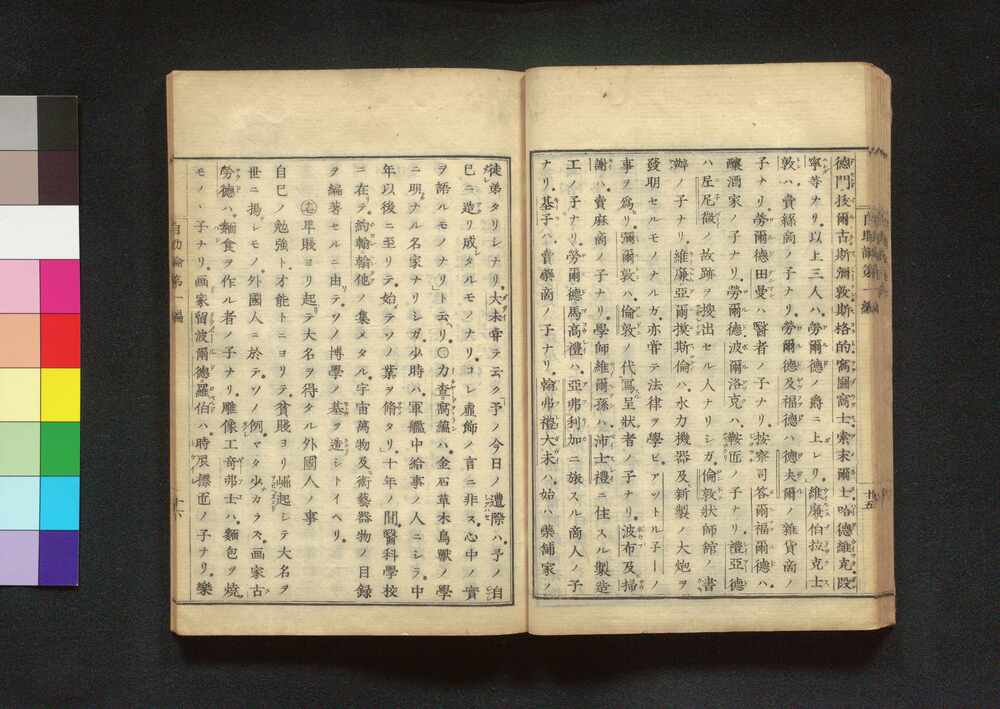 寧等ナリ。以上三人ハ勞爾德ノ爵ニ上レリ。維廉伯拉克士
敦ハ賣絲商ノ子ナリ。勞爾德及福德ハ德夫爾ノ雜貨商ノ
子ナリ。勞爾德田曼ハ醫者ノ子ナリ。按察司答爾福爾德ハ
釀酒家ノ子ナリ。勞爾德波爾洛克ハ鞍匠ノ子ナリ。禮亞德
ハ尼尼微ノ故跡ヲ搜出セル人ナリシガ倫敦狀師館ノ書
辦ノ子ナリ。維廉亞爾撲斯倫ハ水力機器及新製ノ大炮ヲ
發明セルモノナルガ亦甞テ法律ヲ學ビアツトル子ーノ
事ヲ爲リ。彌爾敦ハ倫敦ノ代寫呈狀者ノ子ナリ。波布及掃
謝ハ賣麻商ノ子ナリ。學師維爾孫ハ沛士禮ニ住スル製造
工ノ子ナリ。勞爾德馬高禮ハ亞弗利加ニ旅スル商人ノ子
ナリ。基子ハ賣藥商ノ子ナリ。翰弗禮大未ハ始ハ藥舖家ノ
徒弟タリシナリ。大未甞テ云ク予ノ今日ノ遭際ハ予ノ自
己ニ造リ成タルモノナリコレ虛飾ノ言ニ非ス。心中ノ實
ヲ語ルモノナリト云リ。〇力查窩蘊ハ金石草木鳥獸ノ學
ニ明ナル名家ナリシガ少時ハ軍艦中給事ノ人ニシラ中
年以後ニ至リテ始テソノ業ヲ脩タリ。十年ノ間醫科學校
ニ在テ約翰翰他ノ集メタル宇宙萬物及術藝器物ノ目錄
ヲ編著セルニ由リテソノ博學ノ基ヲ造シトイヘリ。
卑賤ヨリ起テ大名ヲ得タル外國人ノ事
自己ノ勉強ト才能トニヨリテ貧賤ヨリ崛起シテ大名ヲ
世ニ揚レモノ外國人ニ於テソノ例マタ少カラス。画家古
勞德ハ麵食ヲ作ル者ノ子ナリ雕像工奇弗士ハ麵包ヲ燒
モノヽ子ナリ。画家留波爾德羅伯ハ時辰標匠ノ子ナリ。樂